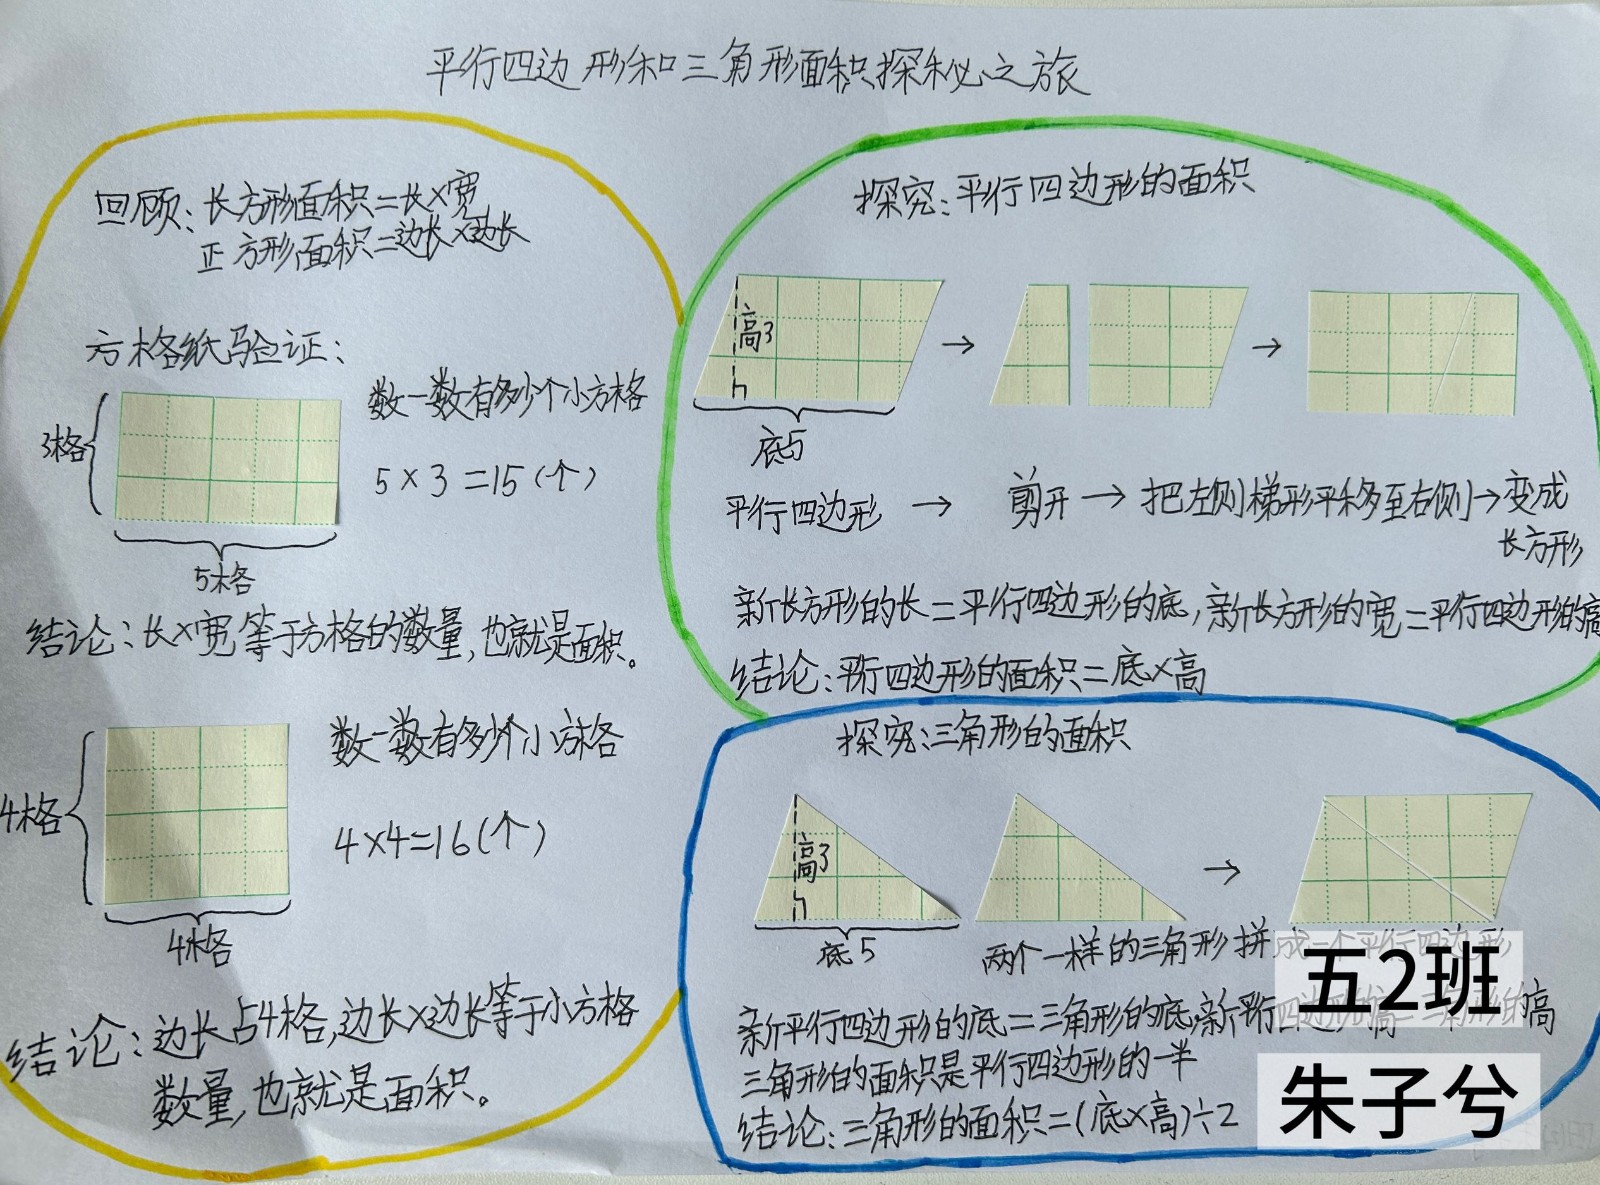 平行四边形和三角形面积探秘之旅
回顾：长方形面积=长×宽
正方形面积=边长×边长
方格纸验证：
3格
数一数有多少个小方格
5×3=15(个)
5格
结论：长×宽等于方格的数量，也就是面积。
4格
数一数有多少个小方格
4×4=16(个)
4格
结论：边长占4格，边长×边长等于小方格
数量，也就是面积。
探究：平行四边形的面积
高3
→ →
底5
平行四边形 → 剪开 → 把左侧梯形平移至右侧 → 变成
长方形
新长方形的长=平行四边形的底，新长方形的宽=平行四边形的高
结论：平行四边形的面积=底×高
探究：三角形的面积
高3
→
底5
两个一样的三角形拼成一个平行四边形
新平行四边形的底=三角形的底，新平行四边形的高=三角形的高
三角形的面积是平行四边形的一半
结论：三角形的面积=(底×高)÷2
五2班
朱子兮